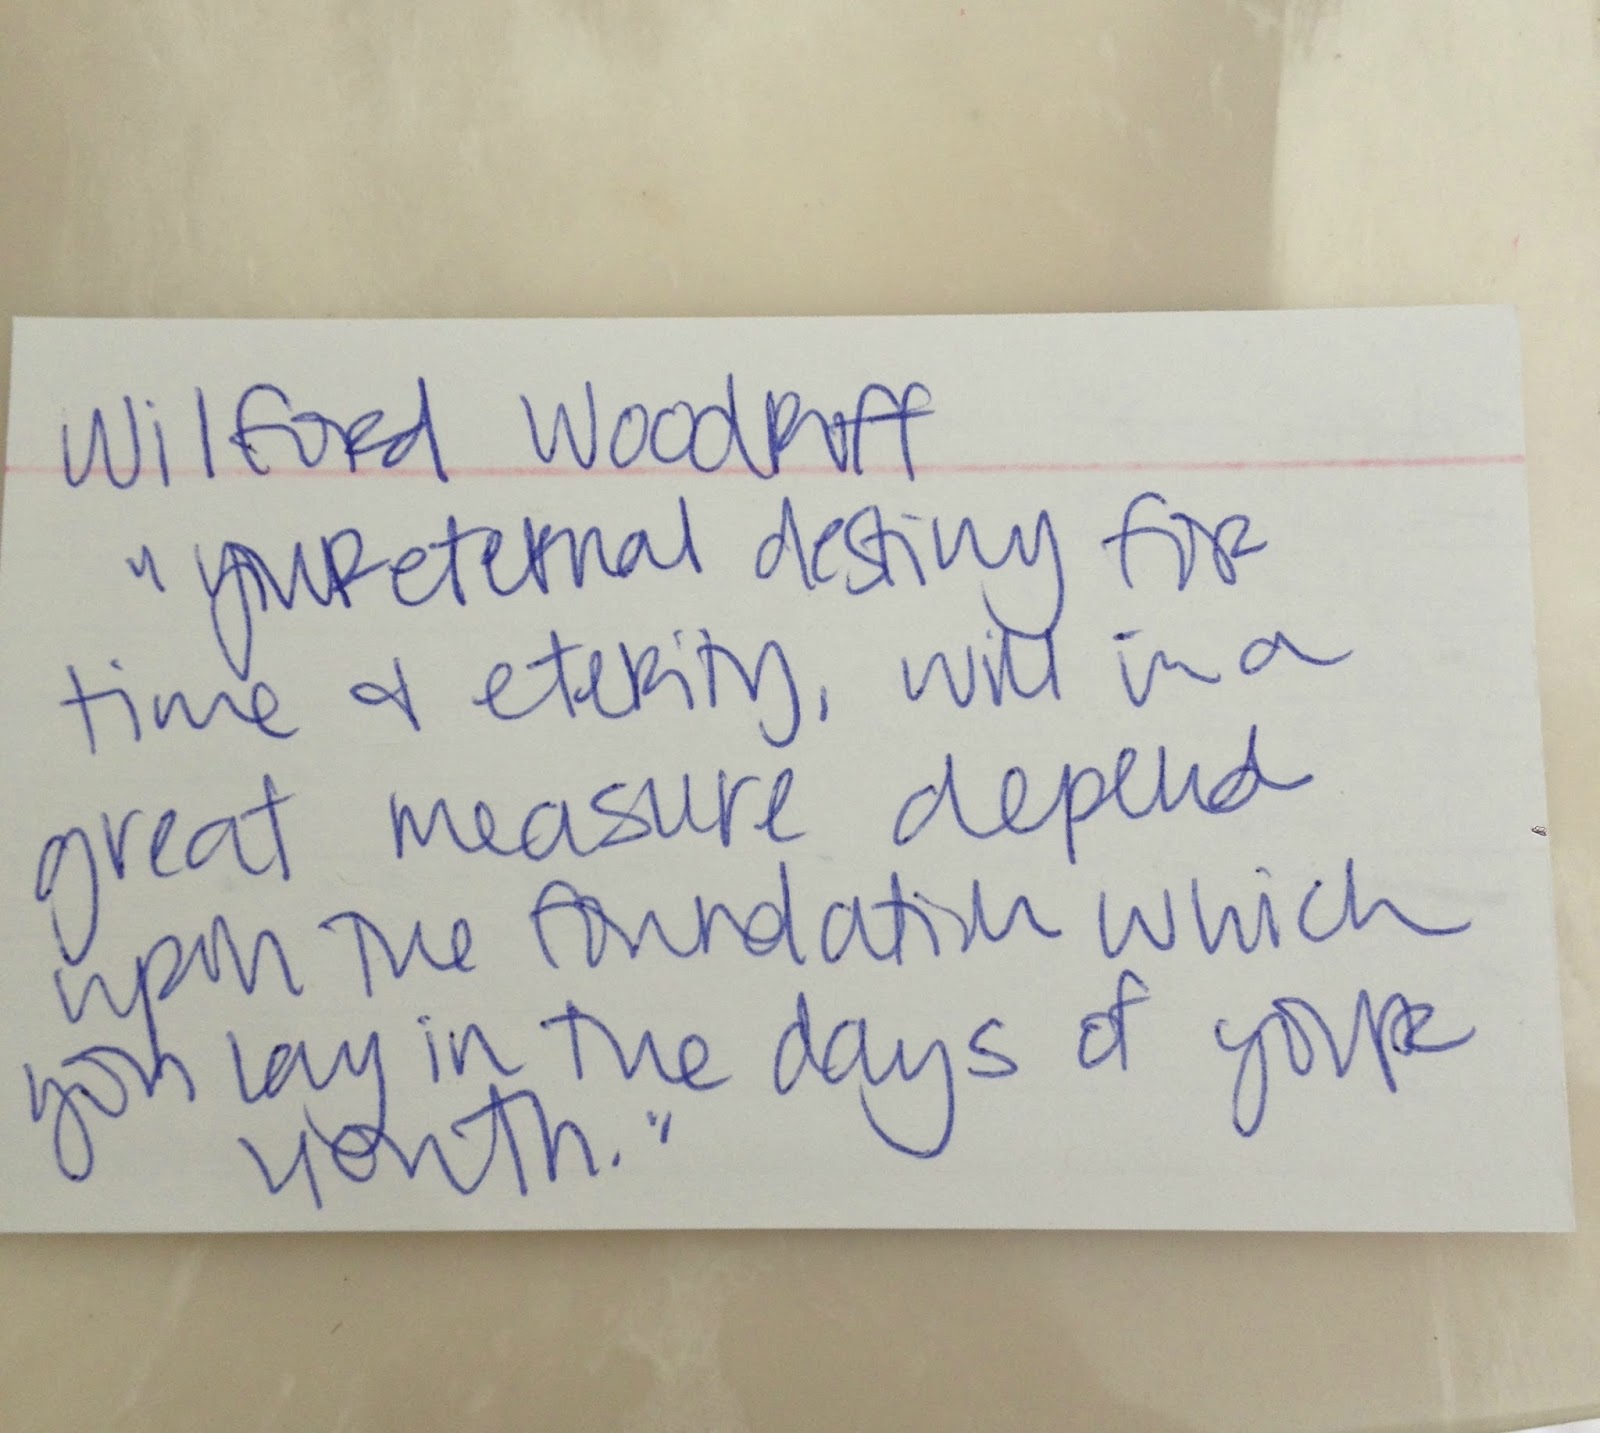 Wilford Woodruff
"your eternal destiny for
time & eterity, will in a
great measure depend
upon the foundation which
you lay in the days of your
youth."